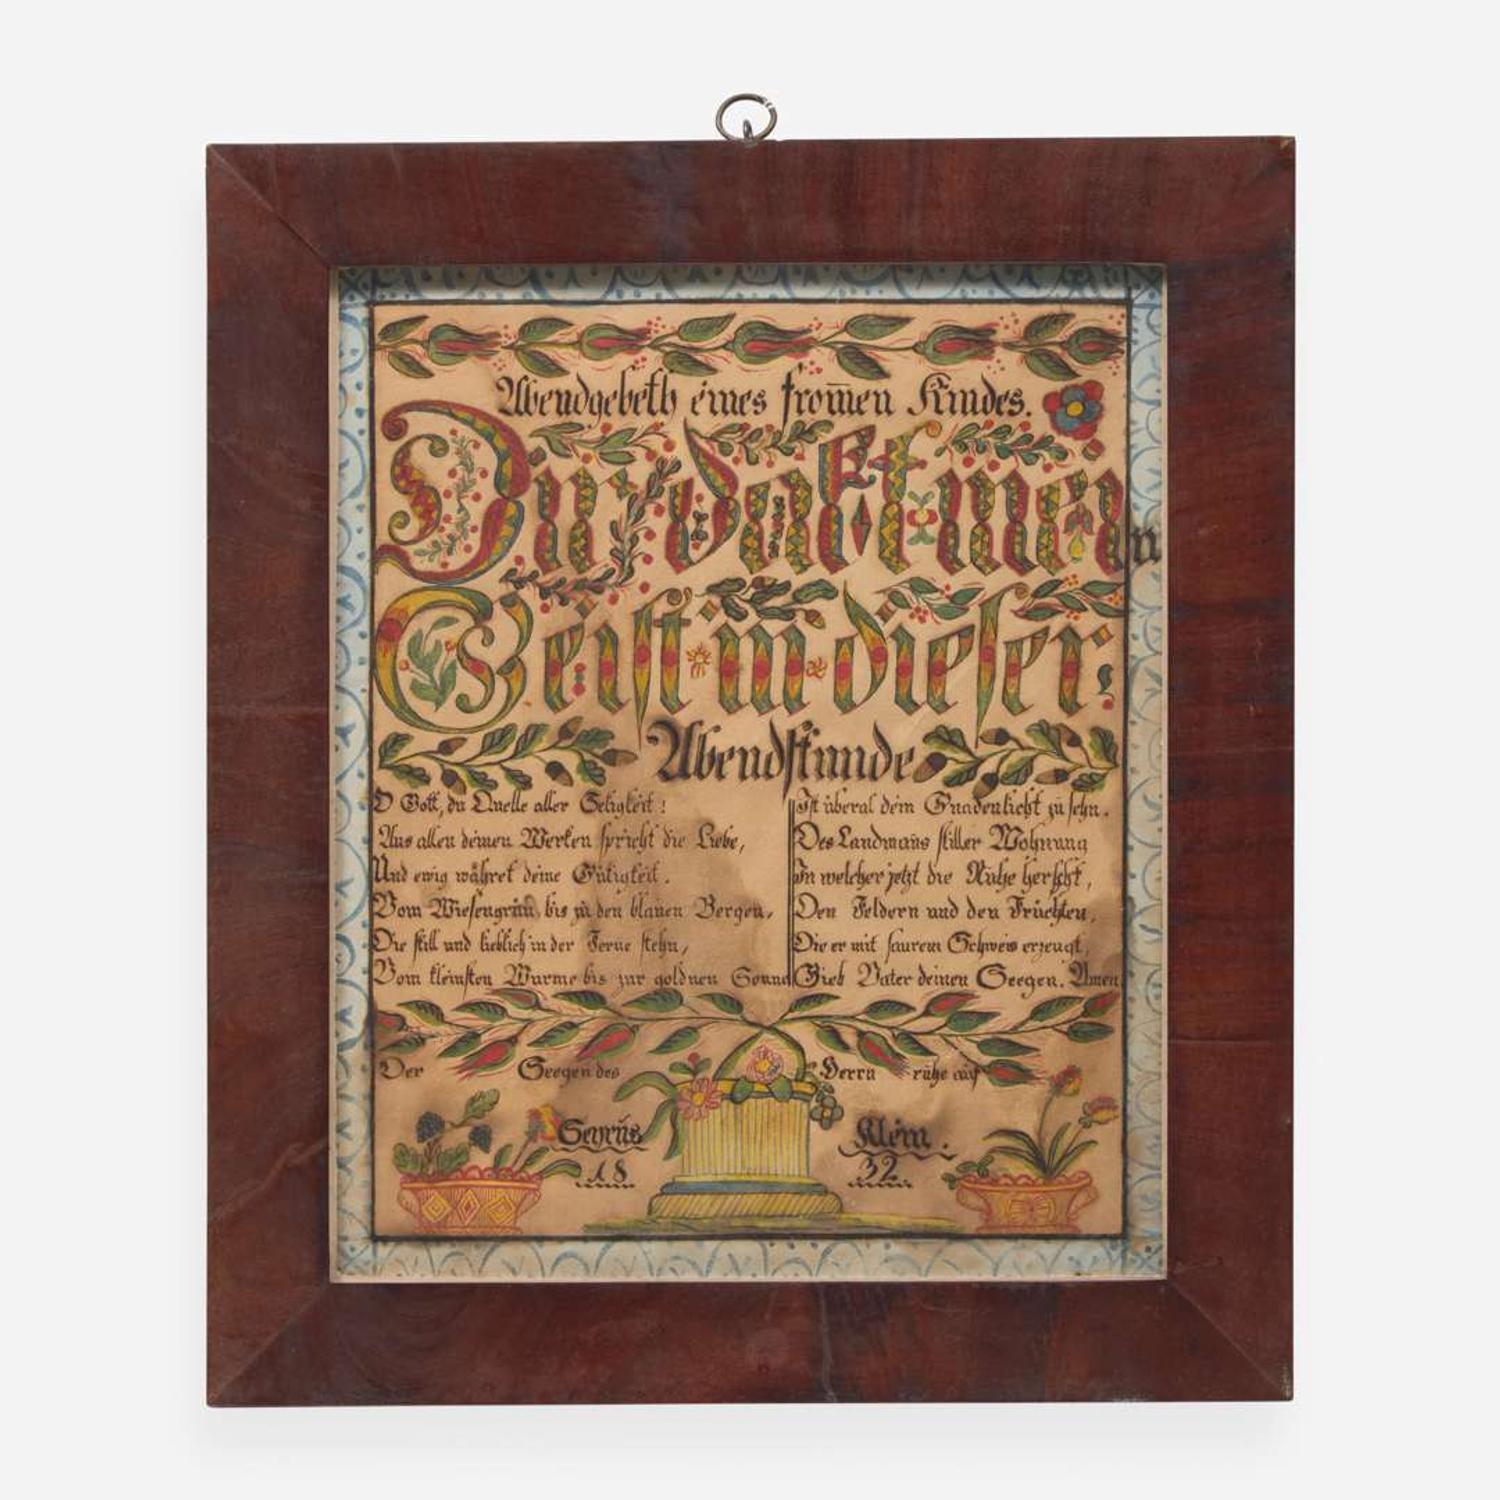 Abendgebeth eines from̅en Kindes.
Dir dankt mein
Geist in dieser
Abendstunde
O Gott, du Quelle aller Seligkeit:
Aus allen deinen Werken spricht die Liebe,
Und ewig währet deine Gütigkeit.
Vom Wiesengrün, bis zu den blauen Bergen,
Die still und lieblich in der Ferne stehn,
Vom kleinsten Wurme bis zur goldnen Sonne
Ist überal dein Gnadenlicht zu sehn.
Des Landman̅s stiller Wohnung
In welcher jetzt die Ruhe herscht,
Den Feldern und den Früchten,
Die er mit saurem Schweis erzeugt,
Gieb Vater deinen Seegen. Amen
Der Seegen des Herrn ruhe auf
Seyrus Klein.
1832